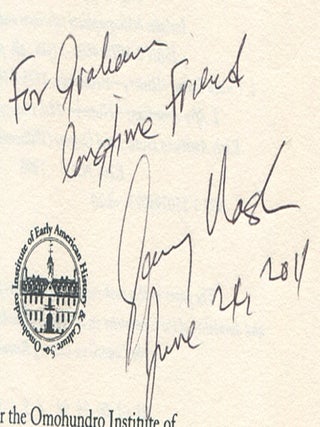 For Graham
longtime friend
Gary Nash
June 24, 2011
Omohundro Institute of Early American History & Culture
r the Omohundro Institute of